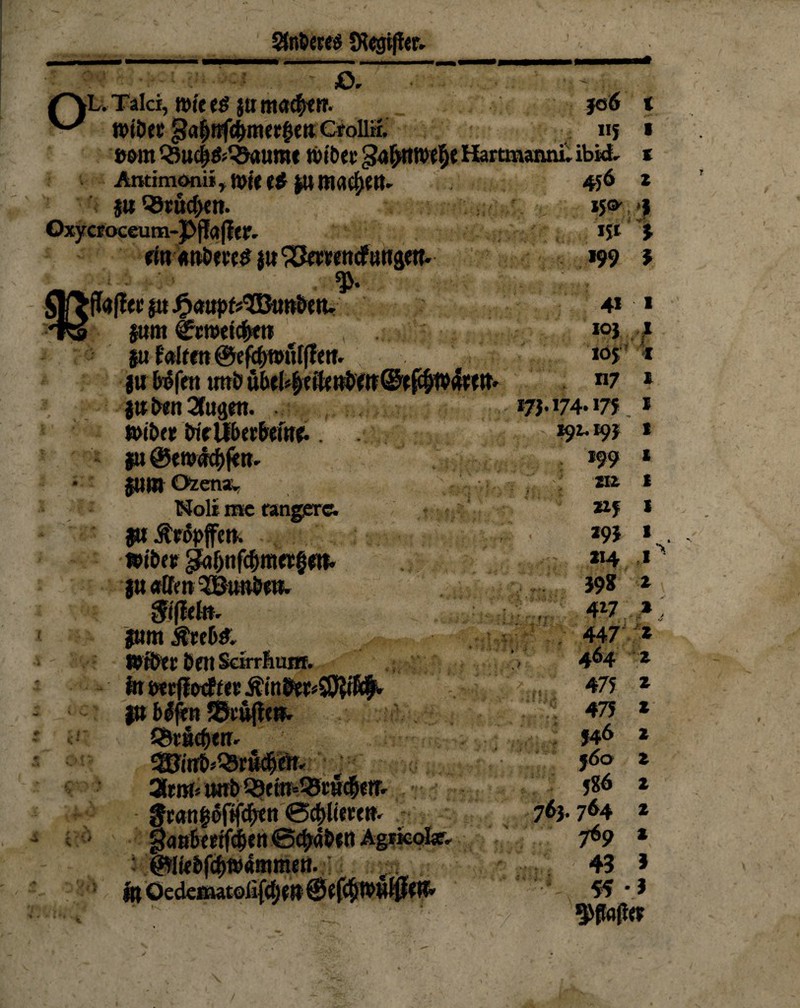 Anderes Register.
O.
OL. Talci, wie es zu machen. 306 1
wider Zahnschmerzen Crollii. 115 1
vom Buchs-Baume wider Zahnwehe Hartmanni. ibid. 1
Antimonii, wie es zu machen. 456 2
zu Brüchen. 150 3
Oxycroceum-Pflaster. 151 3
ein anderes zu Verrenckungen. 199 3
P.
Pflaster zu Haupt-Wunden. 41 1
zum Erweichen 103 1
zu kalten Geschwulsten. 105 1
zu bösen und übel-heilenden Geschwären. 117 1
zu den Augen. 173. 174. 175 1
wider die Uberbeine. 192. 193 1
zu Gewächsen. 199 1
zum Ozena. 212 1
Noli me tangere. 225 1
zu Kröpffen. 293 1
wider Zahnschmerzen. 214 1
zu allen Wunden. 398 2
Fisteln. 427 2
zum Krebs. 447 2
wider den Scirrhum. 464 2
in verstockter Kinder-Milch. 475 2
zu bösen Brüsten. 475 2
Brüchen. 546 2
Wind-Brüchen. 560 2
Arm- und Bein-Brüchen. 586 2
Frantzösischen Schlieren. 763. 764 2
Zauberischen Schäden Agricolæ. 769 2
Gliedschwämmen. 43 3
in Oedematosischen Geschwülsten. 55 3
Pflaster